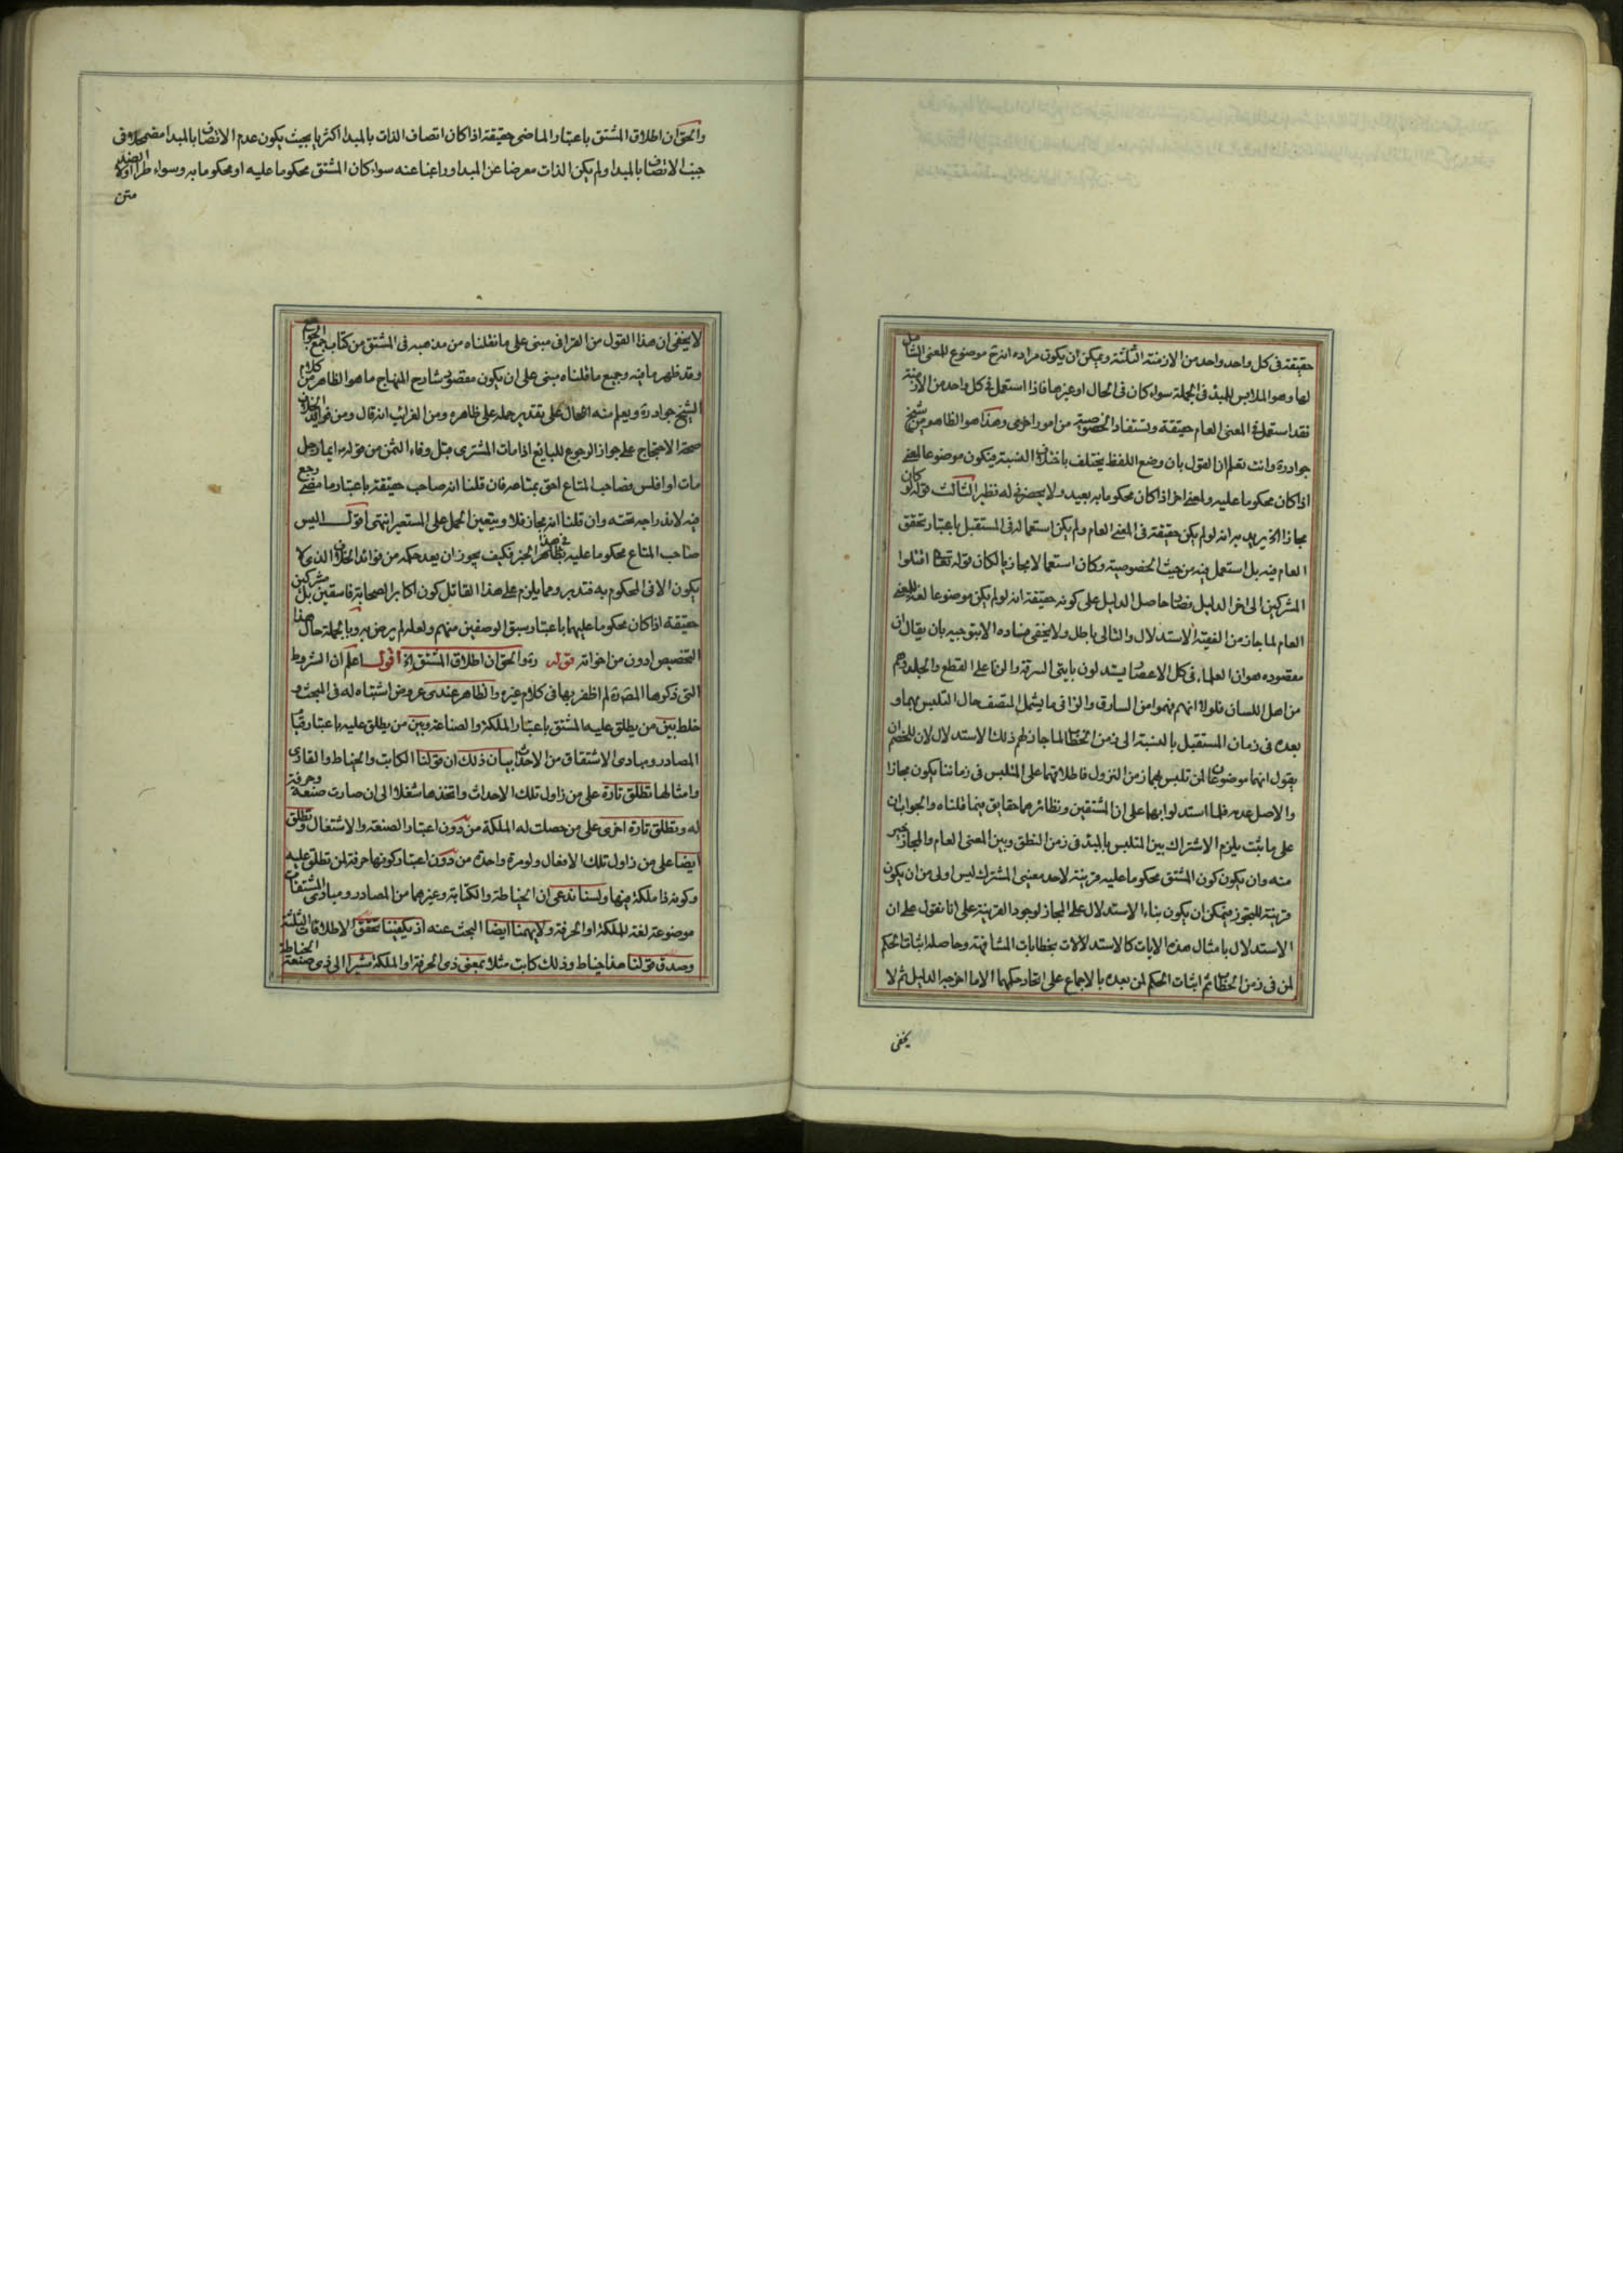 حقيقة فى كل واحد واحد من الازمنة الثلثة ويمكن ان يكون مراده انه ح موضوع للمعنى الشامل
لها وهو الملابس للمبدء فى الجملة سواء كان فى الحال او غيرها فاذا استعمل فى كل واحد من الازمنة
فقد استعمل فى المعنى العام حقيقة وتستفاد الخصوصية من امور اخرى وهذا هو الظاهر من شيخ
جواد ره وانت تعلم ان القول بان وضع اللفظ يختلف باختلاف النسبة فيكون موضوعا لمعنى
اذا كان محكوما عليه ولمعنى اخر اذا كان محكوما به بعيد ولا يحضرنى له نظير الثالث قوله لو كان
مجازا الخ يريد به انه لو لم يكن حقيقة فى المعنى العام ولم يكن استعماله فى المستقبل باعتبار تحقق
العام فيه بل استعمل فيه من حيث الخصوصية وكان استعمالا مجازيا لكان قوله تعالى اقتلوا
المشركين الى اخر الدليل فصار حاصل الدليل على كونه حقيقة انه لو لم يكن موضوعا لغة للمعنى
العام لما جاز من الفقيه الاستدلال والتالى باطل ولا يخفى فساده الا بتوجيه بان يقال ان
مقصوده هو ان العلماء فى كل الاعصار يستدلون بايتى السرقة والزنا على القطع والجلد وهم
من اهل اللسان فلولا انهم فهموا من السارق والزانى ما يشمل المتصف حال التلبس بهما و
بعده فى زمان المستقبل بالنسبة الى زمن الخطاب لما جاز لهم ذلك الاستدلال لان للخصم ان
يقول انهما موضوعان لمن تلبس بهما زمن النزول فاطلاقهما على المتلبس فى زماننا يكون مجازا
والاصل عدمه فلما استدلوا بهما على ان المشتقين ونظائرهما حقايق فيما قلناه والجواب ان
على ما يثبت يلزم الاشتراك بين المتلبس بالمبدء فى زمن النطق وبين المعنى العام والمجاز خير
منه وان يكون كون المشتق محكوما عليه قرينة لاحد معنيى المشترك ليس اولى من ان يكون
قرينة للتجوز فيمكن ان يكون بناء الاستدلال على المجاز لوجود القرينة على انا نقول على ان
الاستدلال بامثال هذه الايات كالاستدلالات بخطابات المشافهة وحاصله اثبات الحكم
لمن فى زمن الخطاب ثم اثبات الحكم لمن بعده بالاجماع على اتحاد حكمهما الا ما اخرجه الدليل ثم لا
يخفى
والحق ان اطلاق المشتق باعتبار الماضى حقيقة اذا كان اتصاف الذات بالمبدا اكثريا بحيث يكون عدم الاتصاف بالمبدا مضمحلا فى
جنب الاتصاف بالمبدا ولم يكن الذات معرضا عن المبدا وراغبا عنه سواء كان المشتق محكوما عليه او محكوما به وسواء طرا الضد او لا
متن
لا يخفى ان هذا القول من القرافى مبنى على ما نقلناه من مذهبه فى المشتق من كتاب جمع الجوامع
وقد ظهر ما فيه وجميع ما قلناه مبنى على ان يكون مقصود شارح المنهاج ما هو الظاهر من كلام
الشيخ جواد ره ويعلم منه الحال على تقدير حمله على ظاهره ومن الغرايب انه قال ومن فوائد الخلاف
صحة الاحتجاج على جواز الرجوع للبايع اذا مات المشترى قبل وفاء الثمن من قوله ايما رجل
مات او افلس فصاحب المتاع احق بمتاعه فان قلنا انه صاحب حقيقة باعتبار ما مضى رجع
فيه لاندراجه تحته وان قلنا انه مجاز فلا ويتعين الحمل على المستعير انتهى اقول اليس
صاحب المتاع محكوما عليه فى هذا الخبر فكيف يجوز ان يعد حكمه من فوائد الخلاف الذى لا
يكون الا فى المحكوم به فتدبر ومما يلزم على هذا القائل كون اكابر الصحابة فاسقين بل مشركين
حقيقة اذا كان محكوما عليهما باعتبار سبق الوصفين منهم ولعله لم يرض به وبالجملة حال هذا
التخصيص ادون من اخواته قوله ره والحق ان اطلاق المشتق الخ اقول اعلم ان الشروط
التى ذكرها المص ره لم اظفر بها فى كلام غيره والظاهر عندى عروض اشتباه له فى المبحث و
خلط بين من يطلق عليه المشتق باعتبار الملكة والصناعة وبين من يطلق عليه باعتبار
المصادر ومبادى الاشتقاق من الاحداث بيان ذلك ان قولنا الكاتب والخياط والقارى
وامثالها تطلق تارة على من زاول تلك الاحداث واتخذها شغلا الى ان صارت صنعة وحرفة
له وتطلق تارة اخرى على من حصلت له الملكة من دون اعتبار الصنعة والاشتغال وتطلق
ايضا على من زاول تلك الافعال ولو مرة واحدة من دون اعتبار كونها حرفة لمن تطلق عليه
وكونه ذا ملكة فيها ولسنا ندعى ان الخياطة والكتابة وغيرهما من المصادر ومبادى المشتقات
موضوعة لغة للملكة او الحرفة ولا يهمنا ايضا البحث عنه اذ يكفينا تحقق الاطلاقات الثلثة
وصدق قولنا هذا خياط وذلك كاتب مثلا بمعنى ذى الحرفة او الملكة مشيرا الى ذى صنعة الخياطة